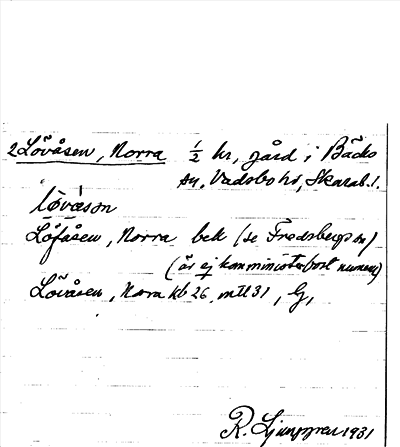 2 Lövåsen, Norra 1/2 kr, gård i Bäcks
sn, Vadsbo hd, Skarab. l.
lø̀våsọn
Löfåsen, Norra bek (se Fredsbergs sn)
(är ej komministerbost numera)
Lövåsen, Norra kb 26, mtl 31, G,
R. Ljunggren 1931